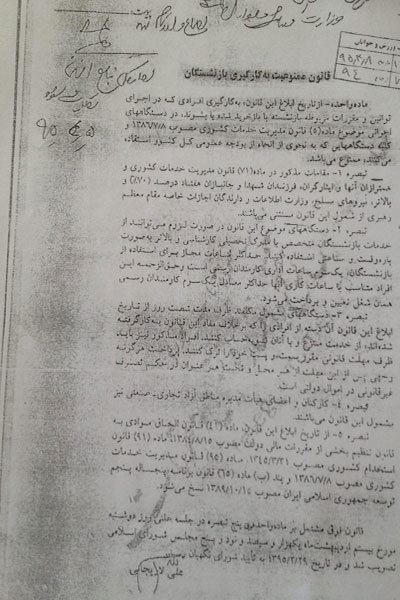 وزارت
قانون ممنوعیت به‌کارگیری بازنشستگان
ماده‌واحده- از تاریخ ابلاغ این قانون، به‌کارگیری افرادی که در اجرای
قوانین و مقررات مربوطه بازنشسته یا بازخرید شده یا بشوند، در دستگاههای
اجرائی موضوع ماده(۵) قانون مدیریت خدمات کشوری مصوب ۱۳۸۶/۷/۸ و
کلیه دستگاههایی که به نحوی از انحاء از بودجه عمومی کل کشور استفاده
می‌کنند، ممنوع می‌باشد.
تبصره ۱- مقامات مذکور در ماده(۷۱) قانون مدیریت خدمات کشوری و
همترازان آنها و ایثارگران، فرزندان شهدا و جانبازان هفتاد درصد(۷۰٪) و
بالاتر، نیروهای مسلح، وزارت اطلاعات و دارندگان اجازات خاصه مقام معظم
رهبری از شمول این قانون مستثنی می‌باشند.
تبصره ۲- دستگاههای موضوع این قانون در صورت لزوم می‌توانند از
خدمات بازنشستگان متخصص با مدرک تحصیلی کارشناسی و بالاتر به‌صورت
پاره‌وقت و ساعتی استفاده کنند. حداکثر ساعات مجاز برای استفاده از
بازنشستگان، یک‌سوم ساعات اداری کارمندان رسمی است وحق‌الزحمه این
افراد متناسب با ساعات کاری آنها حداکثر معادل یک‌سوم کارمندان رسمی
همان شغل تعیین و پرداخت می‌شود.
تبصره ۳- دستگاههای مشمول مکلفند ظرف مدت شصت روز از تاریخ
ابلاغ این قانون آن دسته از افرادی را که برخلاف مفاد این قانون به‌کارگرفته
شده‌اند، از خدمت منفک و با آنان تسویه‌حساب کنند. افراد مذکور نیز باید
ظرف مهلت قانونی مقرر سمت و پست خود را ترک کنند. پرداخت هرگونه
وجهی پس از این مهلت از هر محل و تحت هر عنوان در حکم تصرف
غیرقانونی در اموال دولتی است.
تبصره ۴- کارکنان و اعضای هیأت مدیره مناطق آزاد تجاری- صنعتی نیز
مشمول این قانون می‌باشند.
تبصره ۵- از تاریخ ابلاغ این قانون، ماده(۴۱) قانون الحاق موادی به
قانون تنظیم بخشی از مقررات مالی دولت مصوب ۱۳۸۴/۸/۱۵، ماده (۹۱) قانون
استخدام کشوری مصوب ۱۳۴۵/۳/۳۱، ماده (۹۵) قانون مدیریت خدمات
کشوری مصوب ۱۳۸۶/۷/۸ و بند (ب) ماده (۶۵) قانون برنامه پنجساله پنجم
توسعه جمهوری اسلامی ایران مصوب ۱۳۸۹/۱۰/۱۵ نسخ می‌شود.
قانون فوق مشتمل بر ماده‌واحده و پنج تبصره در جلسه علنی روز دوشنبه
مورخ بیستم اردیبهشت‌ماه یکهزار و سیصد و نود و پنج مجلس شورای اسلامی
تصویب شد و در تاریخ ۱۳۹۵/۲/۲۹ به تأیید شورای نگهبان
علی لاریجانی